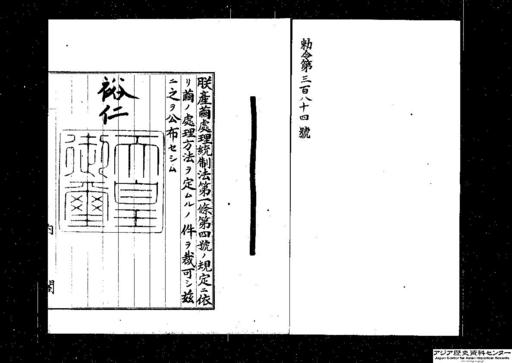 勅令第三百八十四號
朕產繭處理統制法第一條第四號ノ規定ニ依
リ繭ノ處理方法ヲ定ムルノ件ヲ裁可シ茲
ニ之ヲ公布セシム
裕仁
天皇
御璽
内閣
アジア歴史資料センター
Japan Center for Asian Historical Records